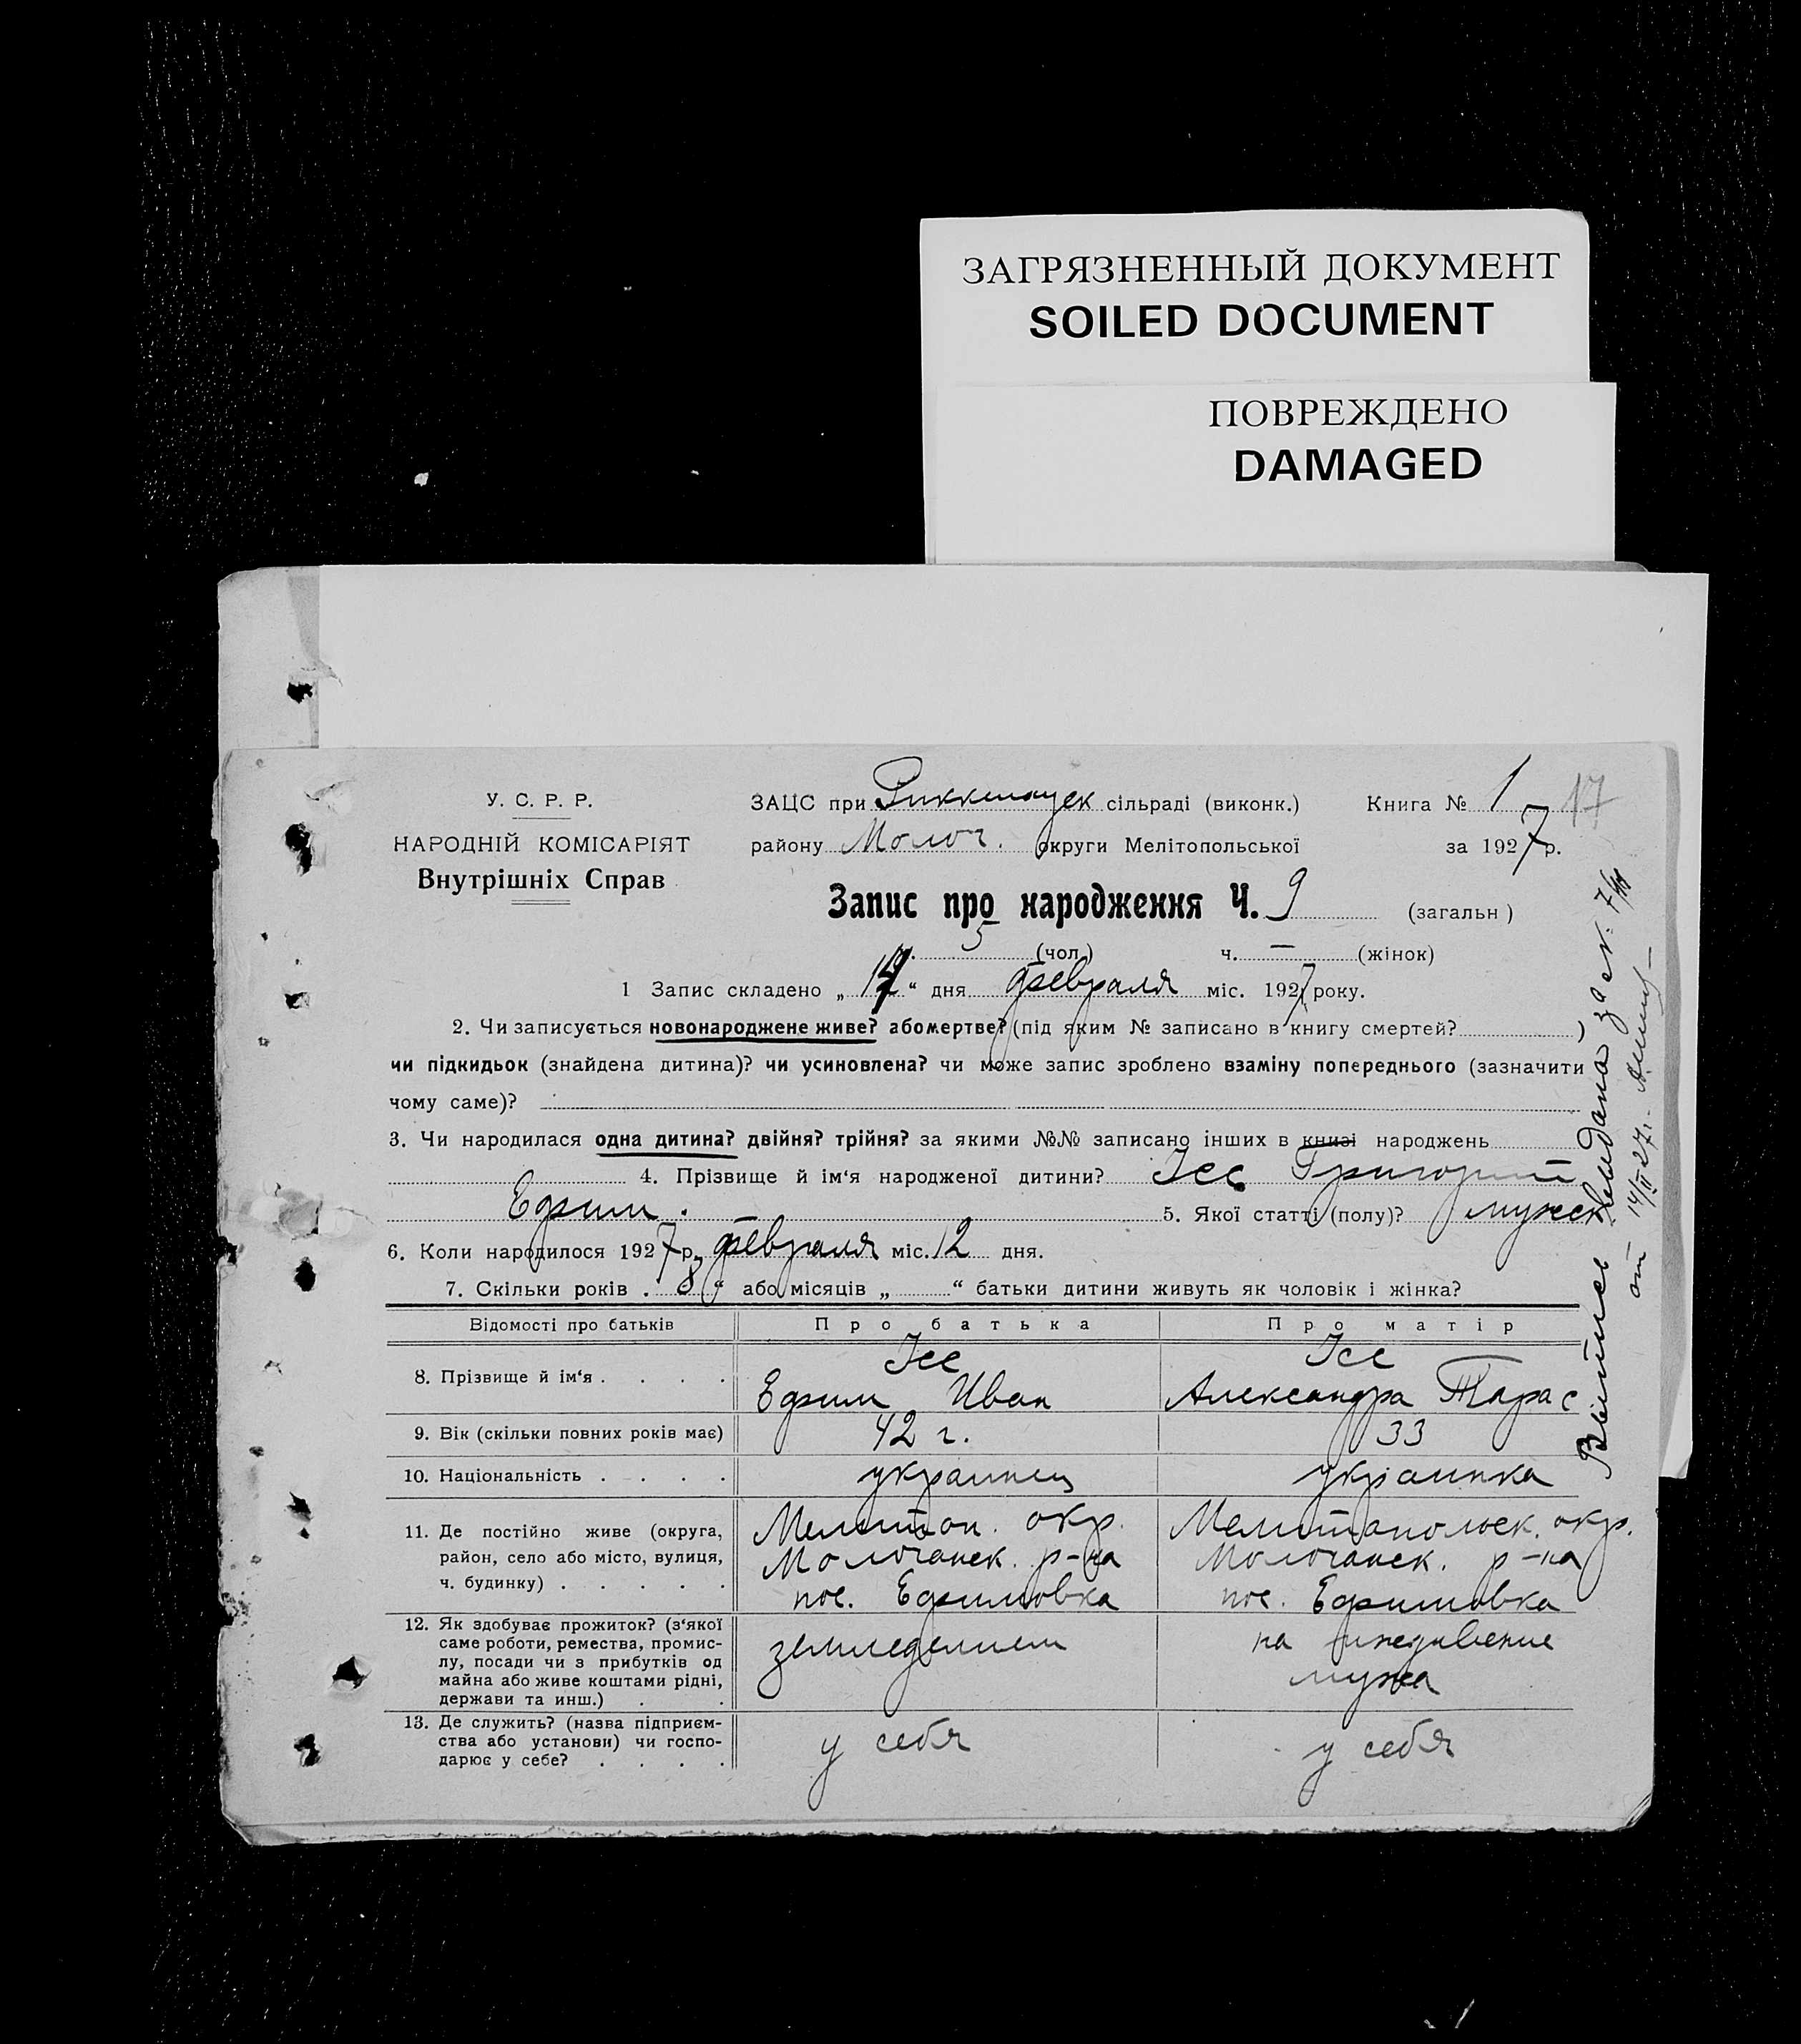 ЗАГРЯЗНЕННЫЙ ДОКУМЕНТ
SOILED DOCUMENT
ПОВРЕЖДЕНО
DAMAGED
У. С. Р. Р.
НАРОДНІЙ КОМІСАРІЯТ
Внутрішніх Справ
ЗАЦС при Риккенауск сільраді (виконк.) Книга № 1 17
району Молоч. округи Мелітопольської за 1927 р.
Запис про народження Ч. 9 (загальн )
ч. 5 (чол.) ч. — (жінок)
1 Запис складено „ 14 “ дня февраля міс. 1927 року.
2. Чи записується новонароджене живе? або мертве? (під яким № записано в книгу смертей? )
чи підкидьок (знайдена дитина)? чи усиновлена? чи може запис зроблено взаміну попереднього (зазначити
чому саме)?
3. Чи народилася одна дитина? двійня? трійня? за якими №№ записано інших в книзі народжень
4. Прізвище й ім‘я народженої дитини? Ісс Григорий
Ефим. 5. Якої статті (полу)? мужск
6. Коли народилося 1927 р. февраля міс. 12 дня.
7. Скільки років . 8 “ або місяців „ “ батьки дитини живуть як чоловік і жінка?
Відомості про батьків Про батька Про матір
8. Прізвище й ім‘я . . . . Ісс Ісс
Ефим Иван Александра Тарас
9. Вік (скільки повних років має) 42 г. 33
10. Національність . . . . украинец украинка
11. Де постійно живе (округа, Мелитоп. окр. Мелитопольск. окр.
район, село або місто, вулиця, Молочанск. р-на Молочанск. р-на
ч. будинку) . . . . . пос. Ефимовка пос. Ефимовка
12. Як здобуває прожиток? (з‘якої
саме роботи, ремества, промис- земледелием на иждивение
лу, посади чи з прибутків од
майна або живе коштами рідні, мужа
держави та инш.) . .
13. Де служить? (назва підприєм-
ства або установи) чи госпо- у себя у себя
дарює у себе? . . . .
Выпись выдана за №
от 14/II 27 г.